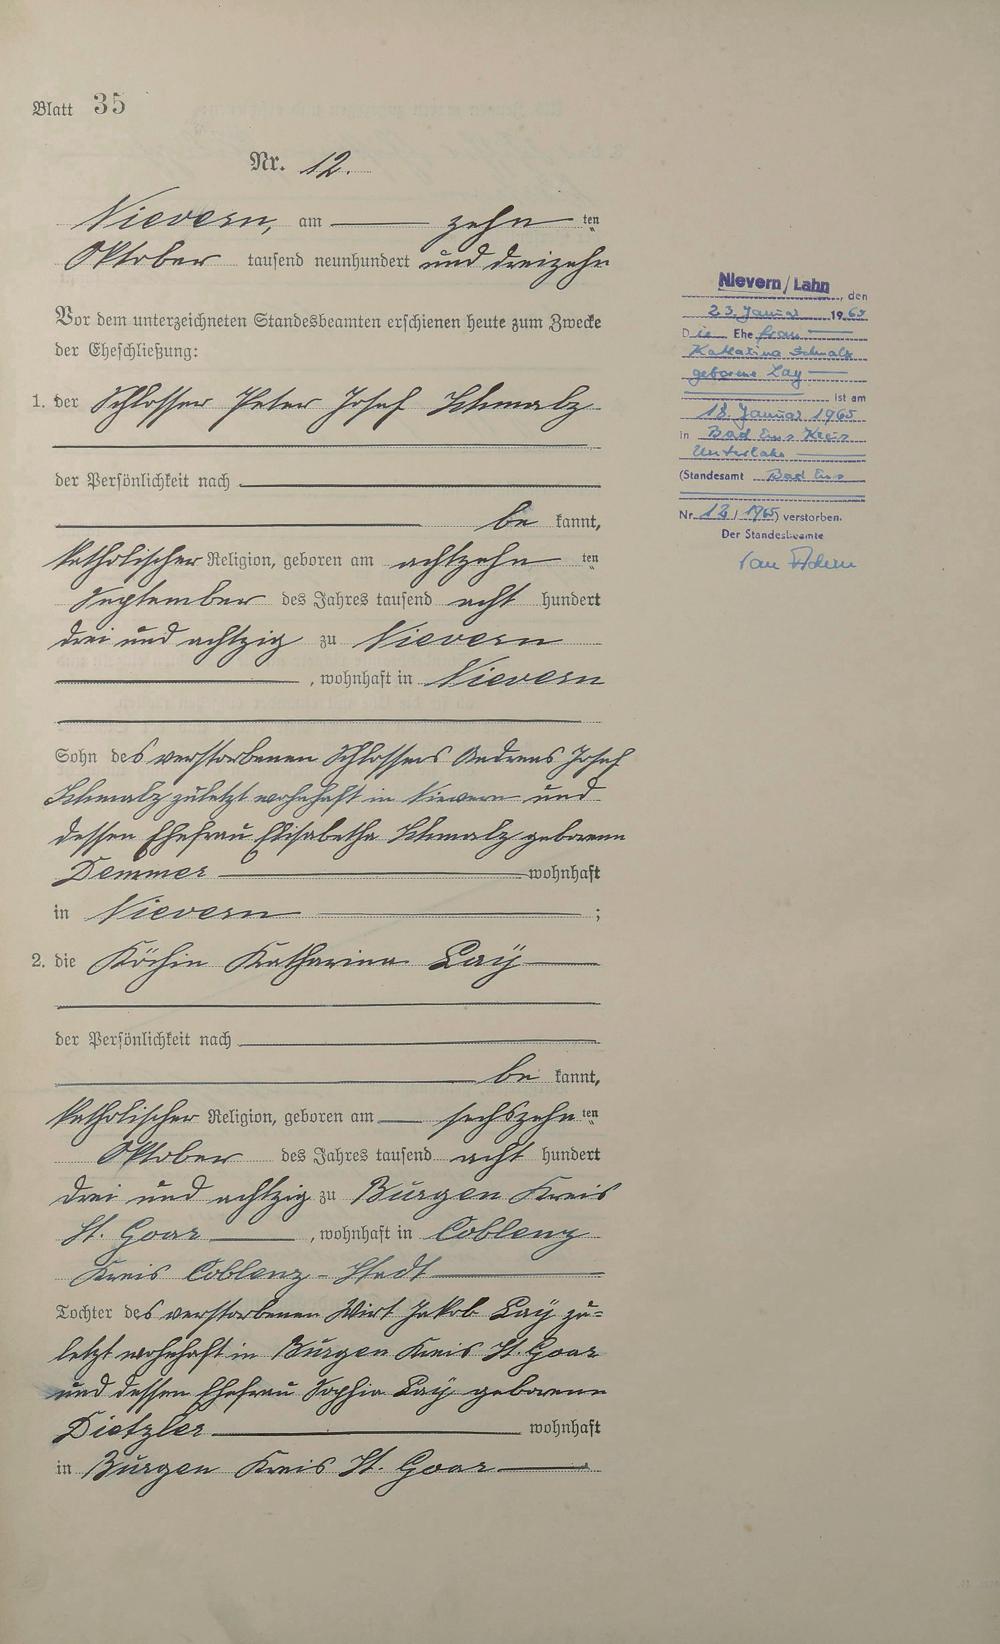 Blatt 35
Nr. 12.
Nievern, am zehn ten
Oktober tausend neunhundert und dreizehn
Vor dem unterzeichneten Standesbeamten erschienen heute zum Zwecke
der Eheschließung:
1. der Schlosser Peter Josef Schmalz
der Persönlichkeit nach
be kannt,
katholischer Religion, geboren am achtzehn ten
September des Jahres tausend acht hundert
drei und achtzig zu Nievern
, wohnhaft in Nievern
Sohn des verstorbenen Schlossers Andreas Josef
Schmalz zuletzt wohnhaft in Nievern und
dessen Ehefrau Elisabetha Schmalz geborenen
Demmer wohnhaft
in Nievern ;
2. die Köchin Katharina Laÿ
der Persönlichkeit nach
be kannt,
katholischer Religion, geboren am sechszehn ten
Oktober des Jahres tausend acht hundert
drei und achtzig zu Burgen Kreis
St. Goar , wohnhaft in Coblenz
Kreis Coblenz-Stadt
Tochter des verstorbenen Wirt Jakob Laÿ zu=
letzt wohnhaft in Burgen Kreis St. Goar
und dessen Ehefrau Sophia Laÿ geborenen
Dietzler wohnhaft
in Burgen Kreis St. Goar
Nievern/Lahn, den
23. Januar 1965
Die Ehefrau
Katharina Schmalz
geborene Lay
ist am
18. Januar 1965
in Bad Ems Kreis
Unterlahn
(Standesamt Bad Ems
Nr. 12/1965) verstorben.
Der Standesbeamte